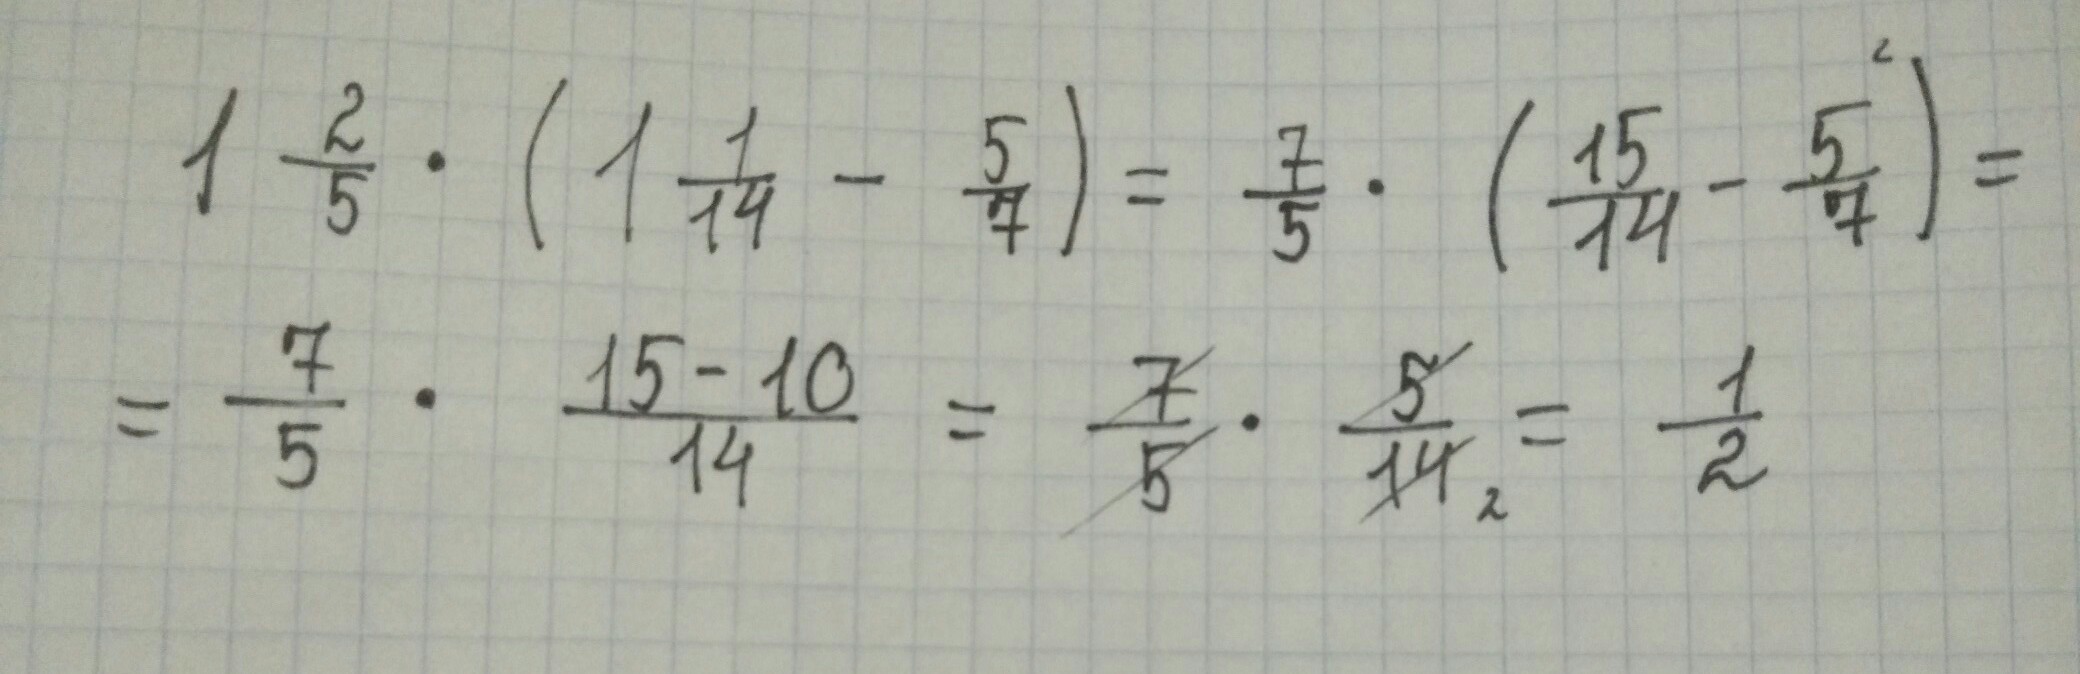 1 2/5 · (1 1/14 - 5/7) = 7/5 · (15/14 - 5/7 ²) =
= 7/5 · 15-10/14 = 7/5 · 5/14 ₂ = 1/2